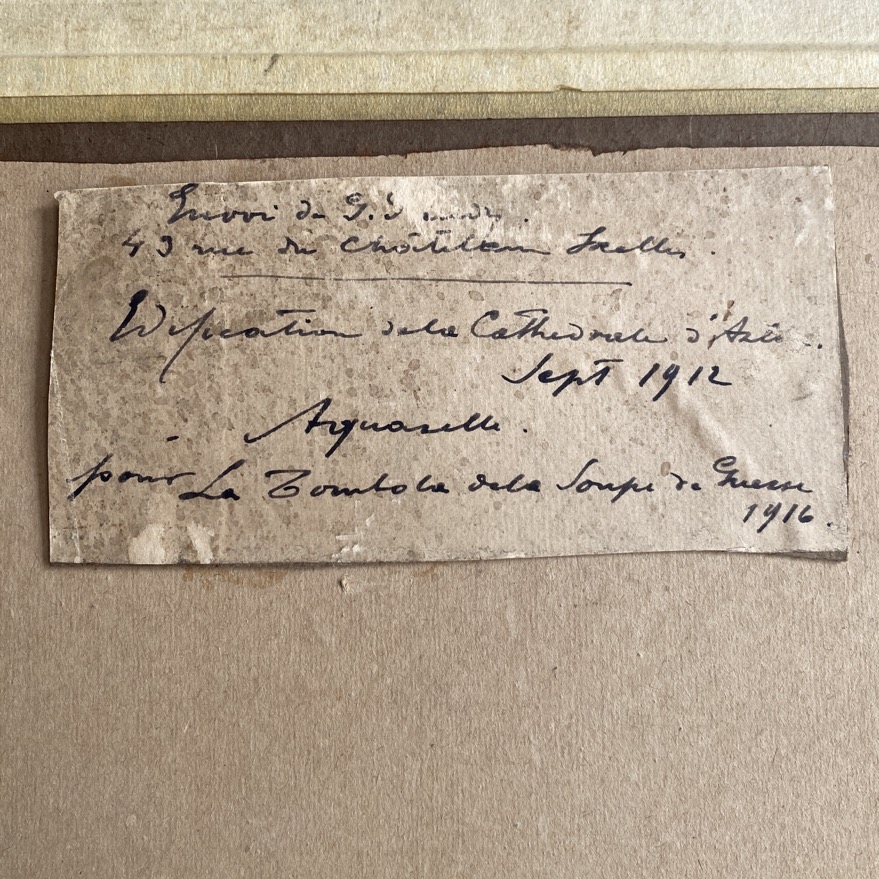 Envoi de G.
43 rue du Châtelain Ixelles.
Edification de la Cathedrale
Sept 1912
Aquarelle.
pour La Tombola de la Soupe de Guerre
1916.